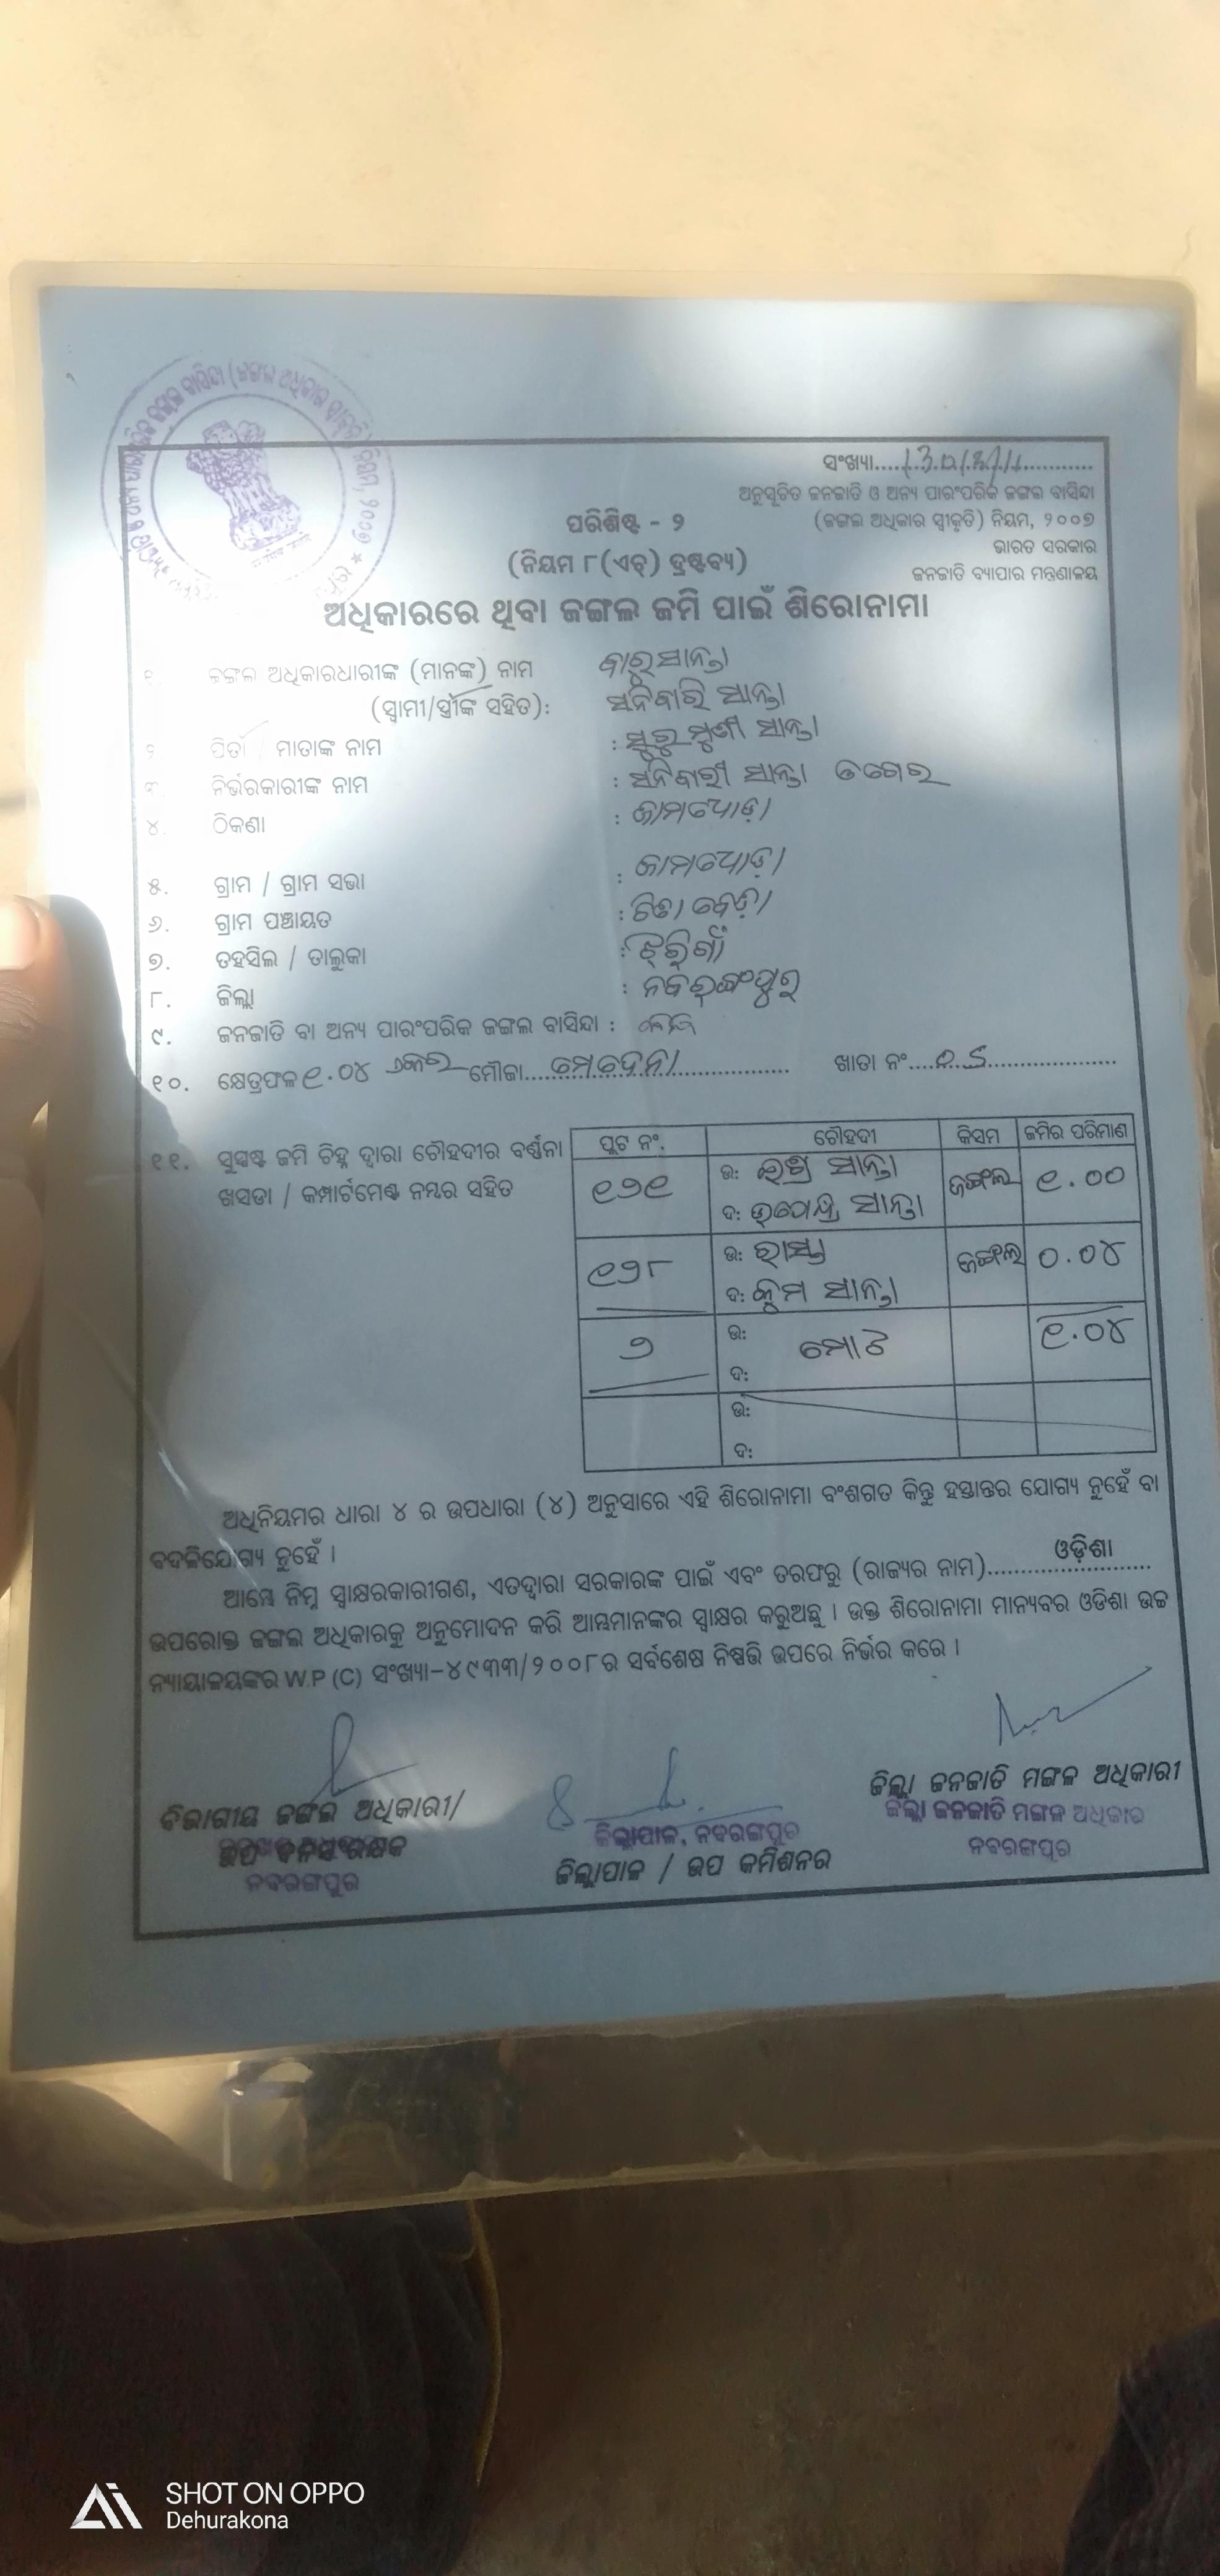 ସଂଖ୍ୟା
ଅନୁସୂଚିତ ଜନଜାତି ଓ ଅନ୍ୟ ପାରଂପରିକ ଜଙ୍ଗଲ ବାସିନ୍ଦା
(ଜଙ୍ଗଲ ଅଧିକାର ସ୍ୱୀକୃତି) ନିୟମ, ୨୦୦୭
ଭାରତ ସରକାର
ଜନଜାତି ବ୍ୟାପାର ମନ୍ତ୍ରଣାଳୟ
ପରିଶିଷ୍ଟ - ୨
(ନିୟମ ୮(ଏଚ୍) ଦ୍ରଷ୍ଟବ୍ୟ)
ଅଧିକାରରେ ଥିବା ଜଙ୍ଗଲ ଜମି ପାଇଁ ଶିରୋନାମା
୧. ଜଙ୍ଗଲ ଅଧିକାରଧାରୀଙ୍କ (ମାନଙ୍କ) ନାମ ବାରୁ ସାନ୍ତା
(ସ୍ୱାମୀ/ସ୍ତ୍ରୀଙ୍କ ସହିତ): ସନିବାରି ସାନ୍ତା
୨. ପିତା / ମାତାଙ୍କ ନାମ : ସାନ୍ତା
୩. ନିର୍ଭରକାରୀଙ୍କ ନାମ : ସନିବାରୀ ସାନ୍ତା
୪. ଠିକଣା :
୫. ଗ୍ରାମ / ଗ୍ରାମ ସଭା :
୬. ଗ୍ରାମ ପଞ୍ଚାୟତ :
୭. ତହସିଲ / ତାଲୁକା : ଝରିଗାଁ
୮. ଜିଲ୍ଲା : ନବରଙ୍ଗପୁର
୯. ଜନଜାତି ବା ଅନ୍ୟ ପାରଂପରିକ ଜଙ୍ଗଲ ବାସିନ୍ଦା :
୧୦. କ୍ଷେତ୍ରଫଳ ୧.୦୪ ଏକର ମୌଜା ମେଦେନା ଖାତା ନଂ
୧୧. ସୁସ୍ପଷ୍ଟ ଜମି ଚିହ୍ନ ଦ୍ୱାରା ଚୌହଦୀର ବର୍ଣ୍ଣନା
ଖସଡା / କମ୍ପାର୍ଟମେଣ୍ଟ ନମ୍ବର ସହିତ
ପ୍ଲଟ ନଂ. ଚୌହଦୀ କିସମ ଜମିର ପରିମାଣ
୧୨୧ ଉ: ସାନ୍ତା ଜଙ୍ଗଲ ୧.୦୦
ଦ: ଉପେନ୍ଦ୍ର ସାନ୍ତା
୧୨୮ ଉ: ରାସ୍ତା ଜଙ୍ଗଲ ୦.୦୪
ଦ: ସାନ୍ତା
୨ ଉ: ମୋଟ ୧.୦୪
ଦ:
ଉ:
ଦ:
ଅଧିନିୟମର ଧାରା ୪ ର ଉପଧାରା (୪) ଅନୁସାରେ ଏହି ଶିରୋନାମା ବଂଶଗତ କିନ୍ତୁ ହସ୍ତାନ୍ତର ଯୋଗ୍ୟ ନୁହେଁ ବା
ବଦଳିଯୋଗ୍ୟ ନୁହେଁ ।
ଆମ୍ଭେ ନିମ୍ନ ସ୍ୱାକ୍ଷରକାରୀଗଣ, ଏତଦ୍ଦ୍ୱାରା ସରକାରଙ୍କ ପାଇଁ ଏବଂ ତରଫରୁ (ରାଜ୍ୟର ନାମ) ଓଡ଼ିଶା
ଉପରୋକ୍ତ ଜଙ୍ଗଲ ଅଧିକାରକୁ ଅନୁମୋଦନ କରି ଆମ୍ଭମାନଙ୍କର ସ୍ୱାକ୍ଷର କରୁଅଛୁ । ଉକ୍ତ ଶିରୋନାମା ମାନ୍ୟବର ଓଡିଶା ଉଚ୍ଚ
ନ୍ୟାୟାଳୟଙ୍କର W.P (C) ସଂଖ୍ୟା-୪୯୩୩/୨୦୦୮ର ସର୍ବଶେଷ ନିଷ୍ପତ୍ତି ଉପରେ ନିର୍ଭର କରେ ।
ବିଭାଗୀୟ ଜଙ୍ଗଲ ଅଧିକାରୀ/
ଉପ ବନସଂରକ୍ଷକ
ନବରଙ୍ଗପୁର
ଜିଲ୍ଲାପାଳ, ନବରଙ୍ଗପୁର
ଜିଲ୍ଲାପାଳ / ଉପ କମିଶନର
ଜିଲ୍ଲା ଜନଜାତି ମଙ୍ଗଳ ଅଧିକାରୀ
ଜିଲ୍ଲା ଜନଜାତି ମଙ୍ଗଳ ଅଧିକାରୀ
ନବରଙ୍ଗପୁର
SHOT ON OPPO
Dehurakona